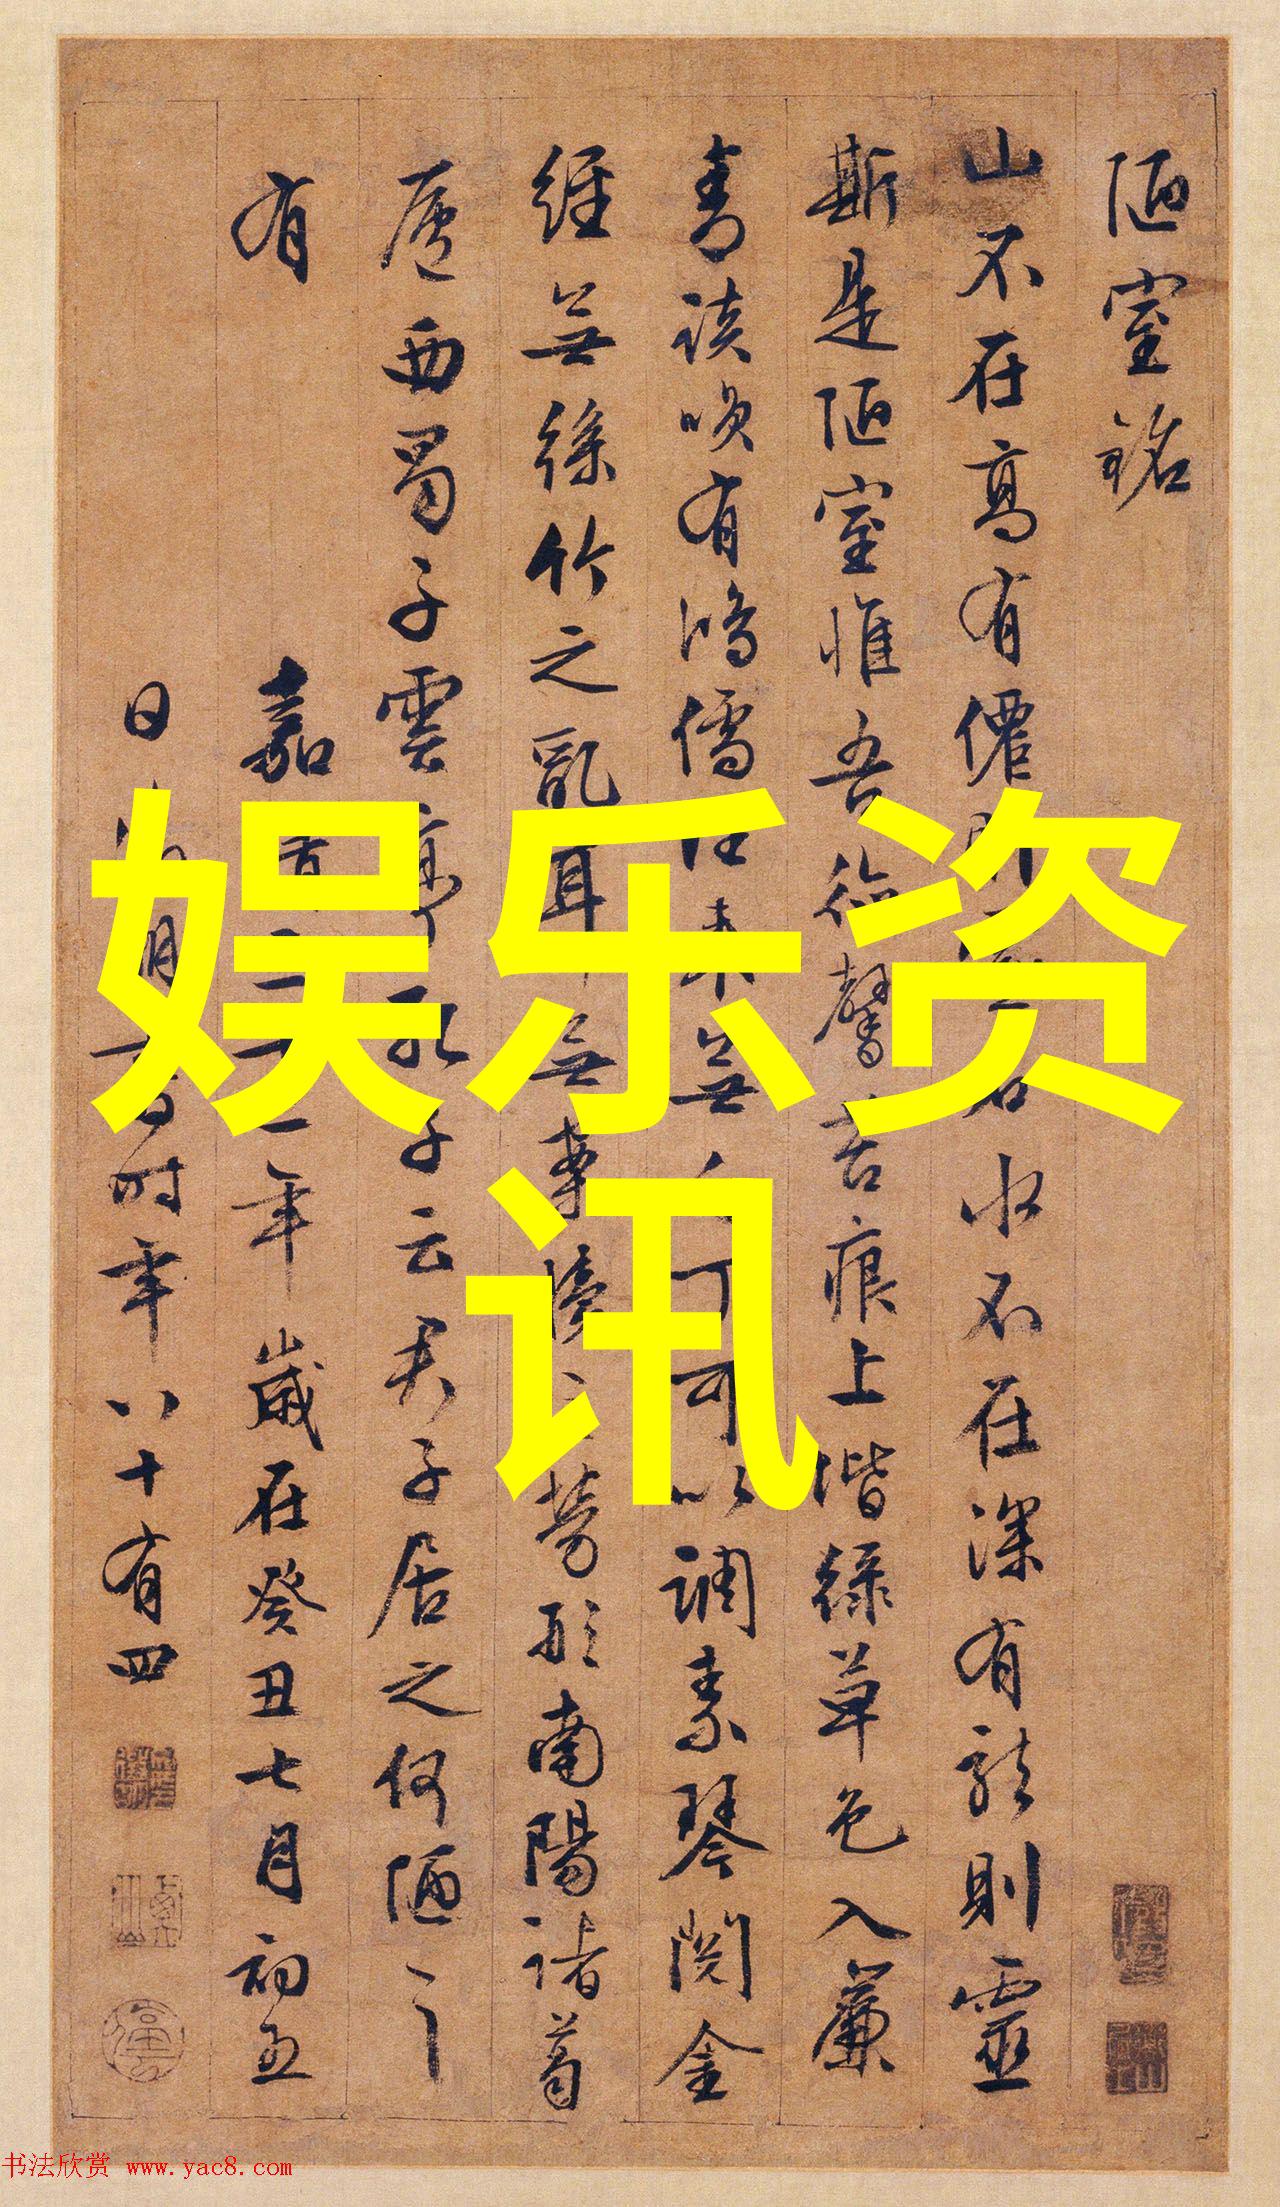 陋室銘
山不在高有僊則名水不在深有龍則靈
斯是陋室惟吾德馨苔痕上堦綠草色入簾
青談咲有鴻儒往来無白丁可以調素琴閱金
經無絲竹之亂耳無案牘之勞形南陽諸葛
廬西蜀子雲亭孔子云君子居之何陋之
有
嘉靖三十二年歲在癸丑七月初五
日徵明書時年八十有四
娱乐资
讯
书法欣赏 www.yac8.com